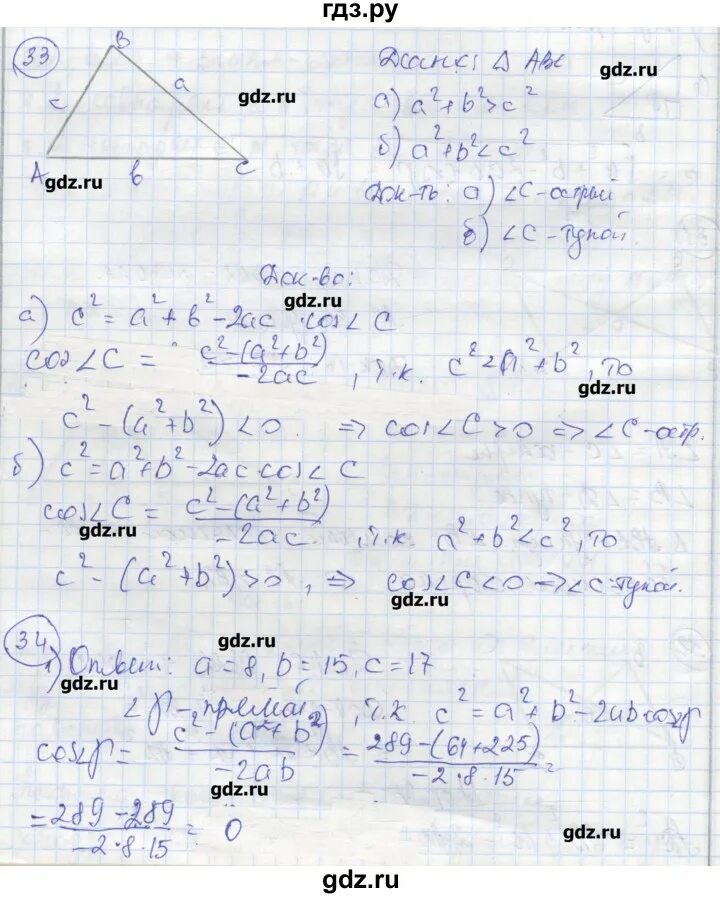 гдз.ру
33
B
a
c
A
b
C
Дано: Δ ABC
gdz.ru
gdz.ru
а) a² + b² > c²
б) a² + b² < c²
gdz.ru
Док-ть: а) ∠C - острый
gdz.ru
б) ∠C - тупой.
Док-во:
gdz.ru
а) c² = a² + b² - 2ac · cos∠C
cos∠C = c² - (a² + b²) / -2ac, т.к. c² < a² + b², то
gdz.ru
c² - (a² + b²) < 0. ⇒ cos∠C > 0 ⇒ ∠C - остр.
б) c² = a² + b² - 2ac cos∠C
cos∠C = c² - (a² + b²) / -2ac, т.к. a² + b² < c², то
gdz.ru
c² - (a² + b²) > 0, ⇒ cos∠C < 0 ⇒ ∠C - тупой.
gdz.ru
34
gdz.ru
1) Ответ: a = 8, b = 15, c = 17
gdz.ru
∠β - прямой, т.к. c² = a² + b² - 2ab cosβ
cos∠β = c² - (a² + b²) / -2ab = 289 - (64 + 225) / -2·8·15 =
gdz.ru
= 289 - 289 / -2·8·15 = 0
gdz.ru
gdz.ru